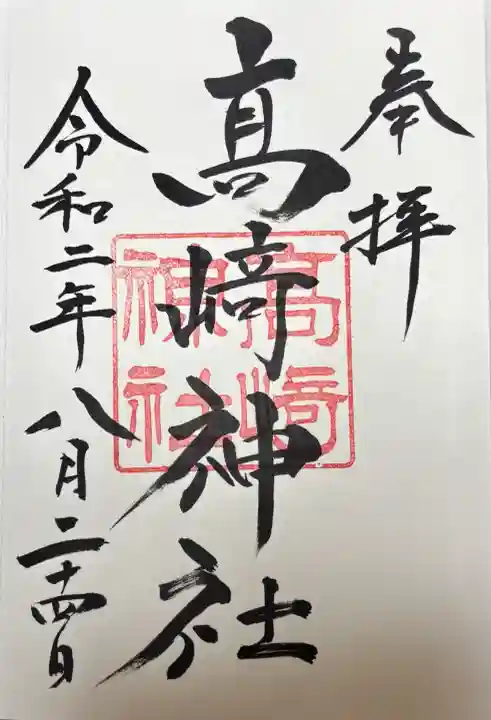 奉拝
髙﨑神社
髙﨑
神社
令和二年 八月二十四日